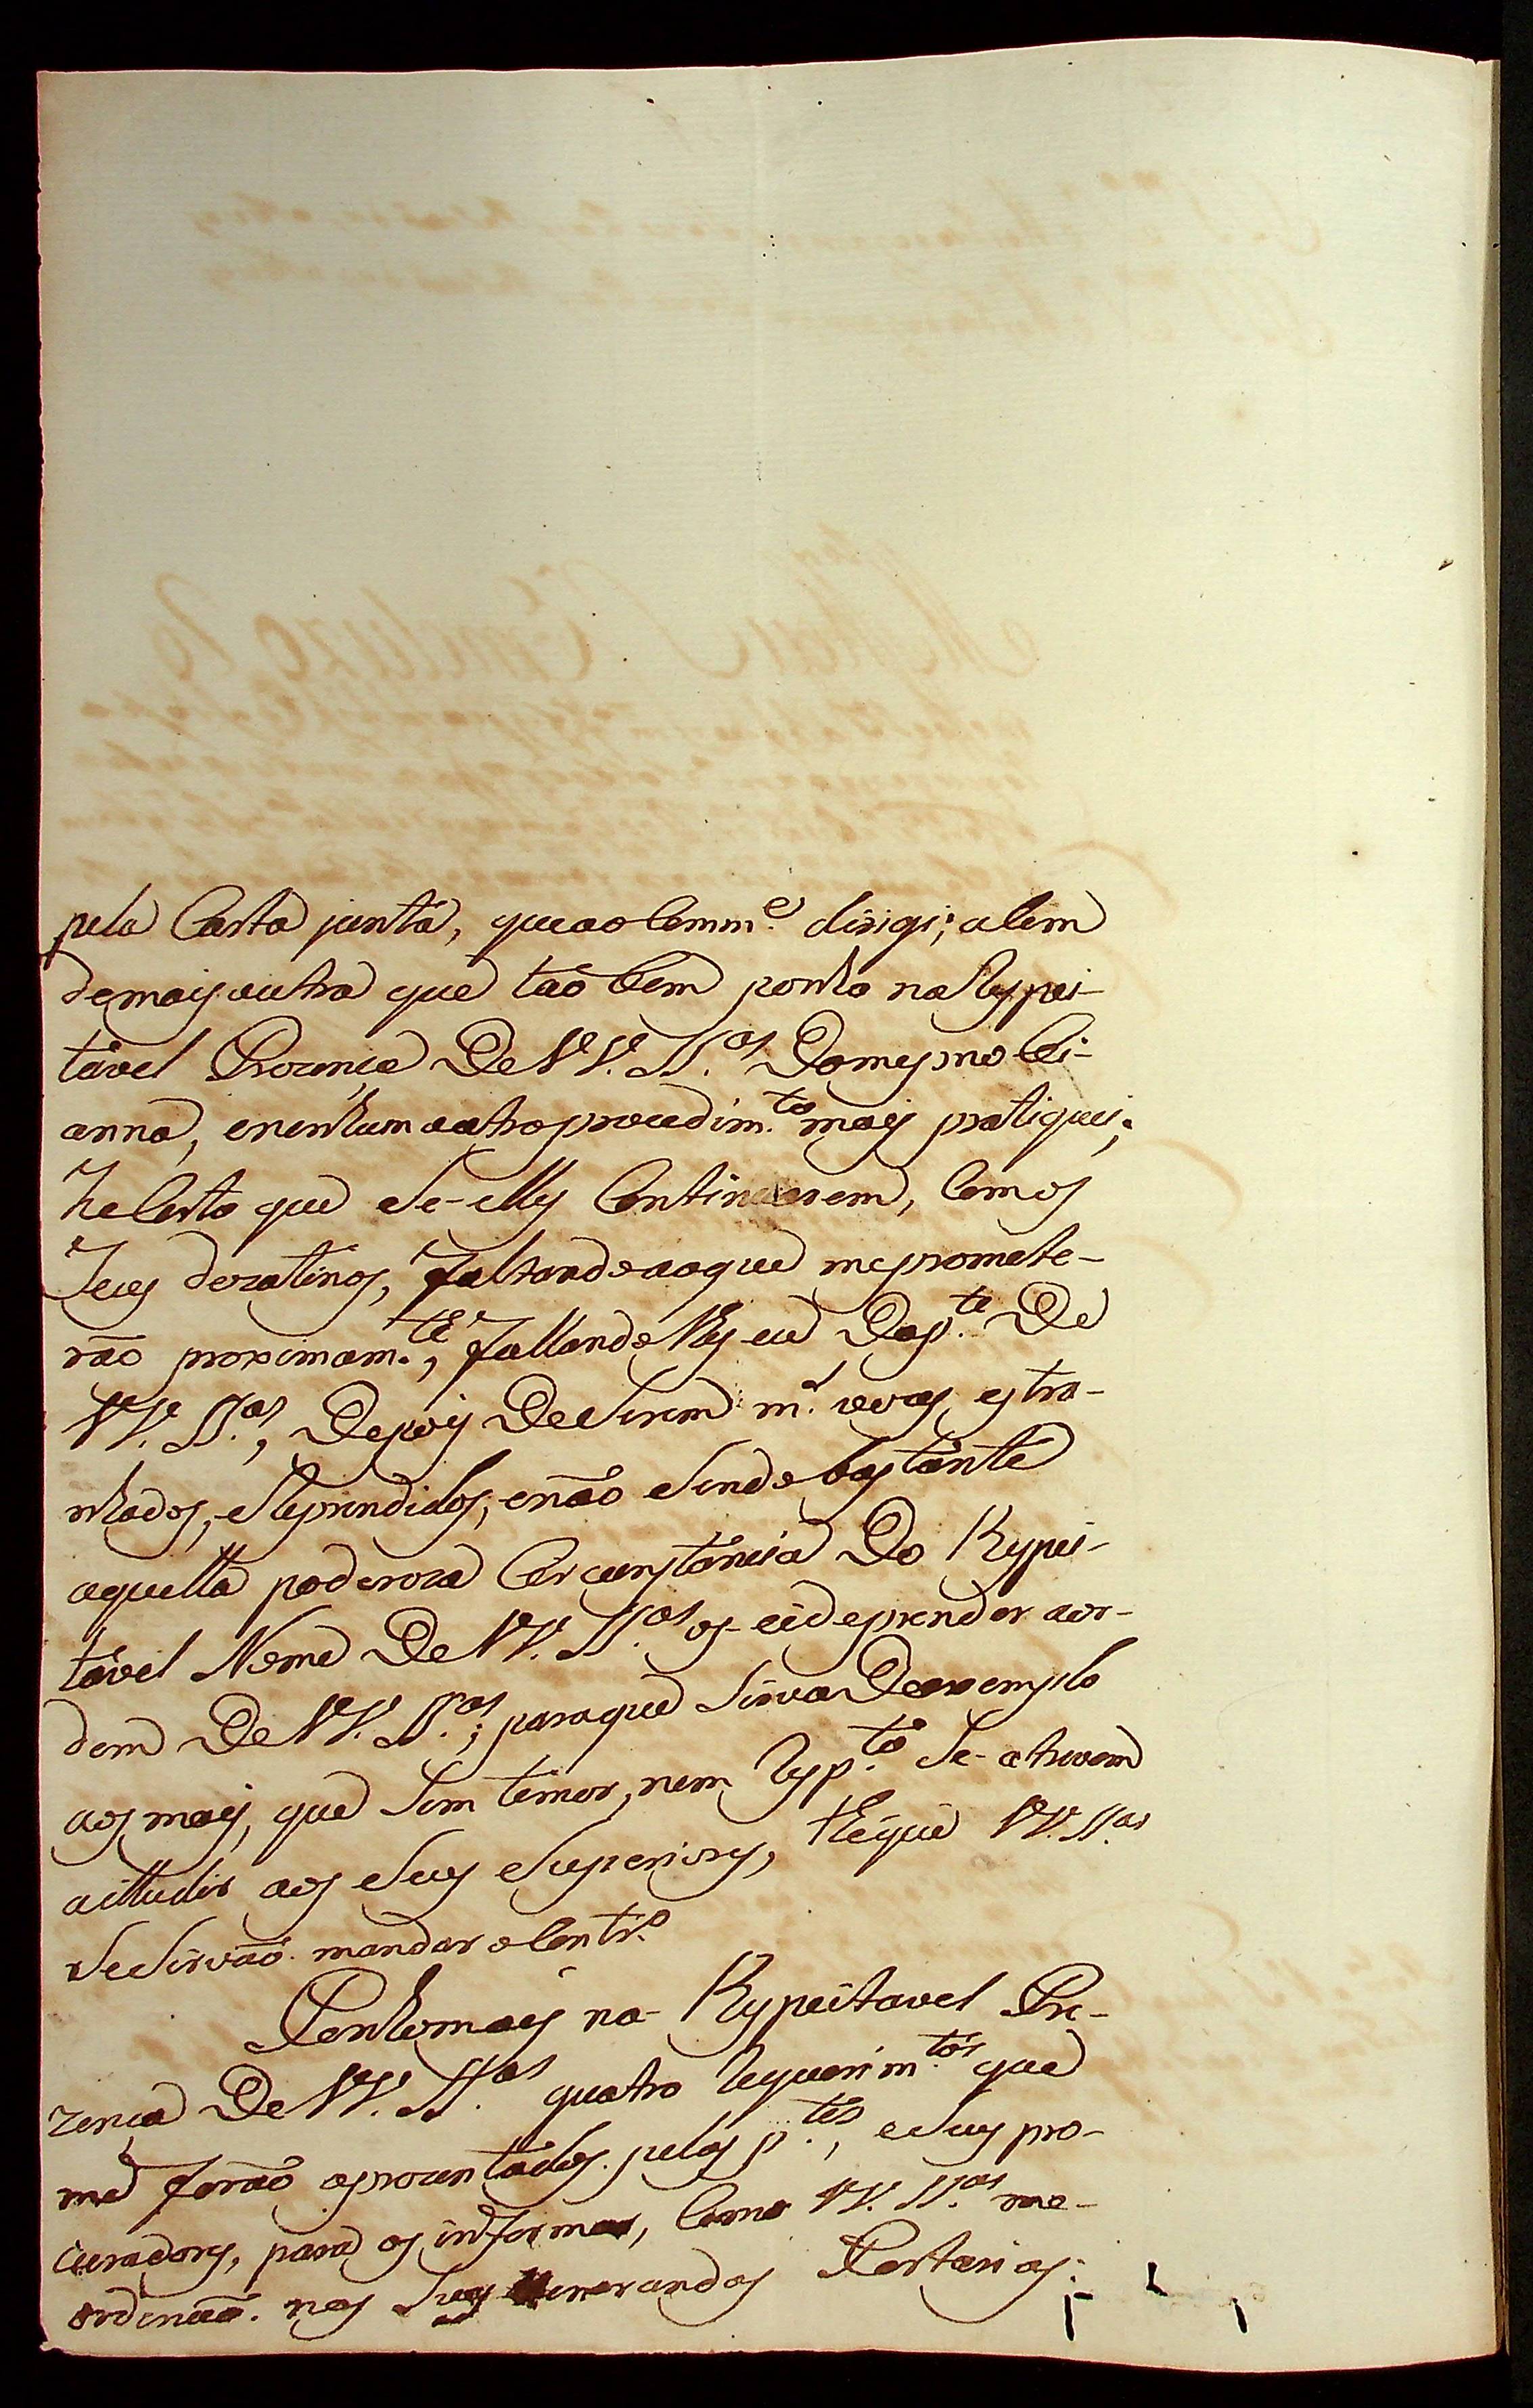 pela Carta junta, queao Comm.e dirigi; alem
demais outra que tão bem ponho na Respei-
tavel Prezença De VV. SS.as Domesmo Vi-
anna, enenhum outro procedim.to mais pratiquei;
he Certo que Se-elles Continuarem, Com os
Seus dezatinos, faltando aoque mepromete-
rão proximam.te, fallandolhes eu Dap.te De
VV. SS.as, Depois DeSerem m.s vezes estra-
nhados, eReprendidos; enão Sendo bastante
aquella poderoza Circunstancia Do Respei-
tavel Nome De VV. SS.as os-eide prender aor-
dem De VV. SS.as; paraque Sirva Deexemplo
aos mais, que Sem temor, nem Resp.to Se-atrevem
ailludir aos Seus Superiores, théque VV. SS.as
SeSirvão mandar oContr.o
Ponhomais na Respeitavel Pre-
zença De VV. SS.as quatro Requerim.tos que
me forão aprezentados pelos p.tes, eSeus pro-
curadores, para os informar, Como VV. SS.as me-
ordenão nos Seus Venerandos Portarias: